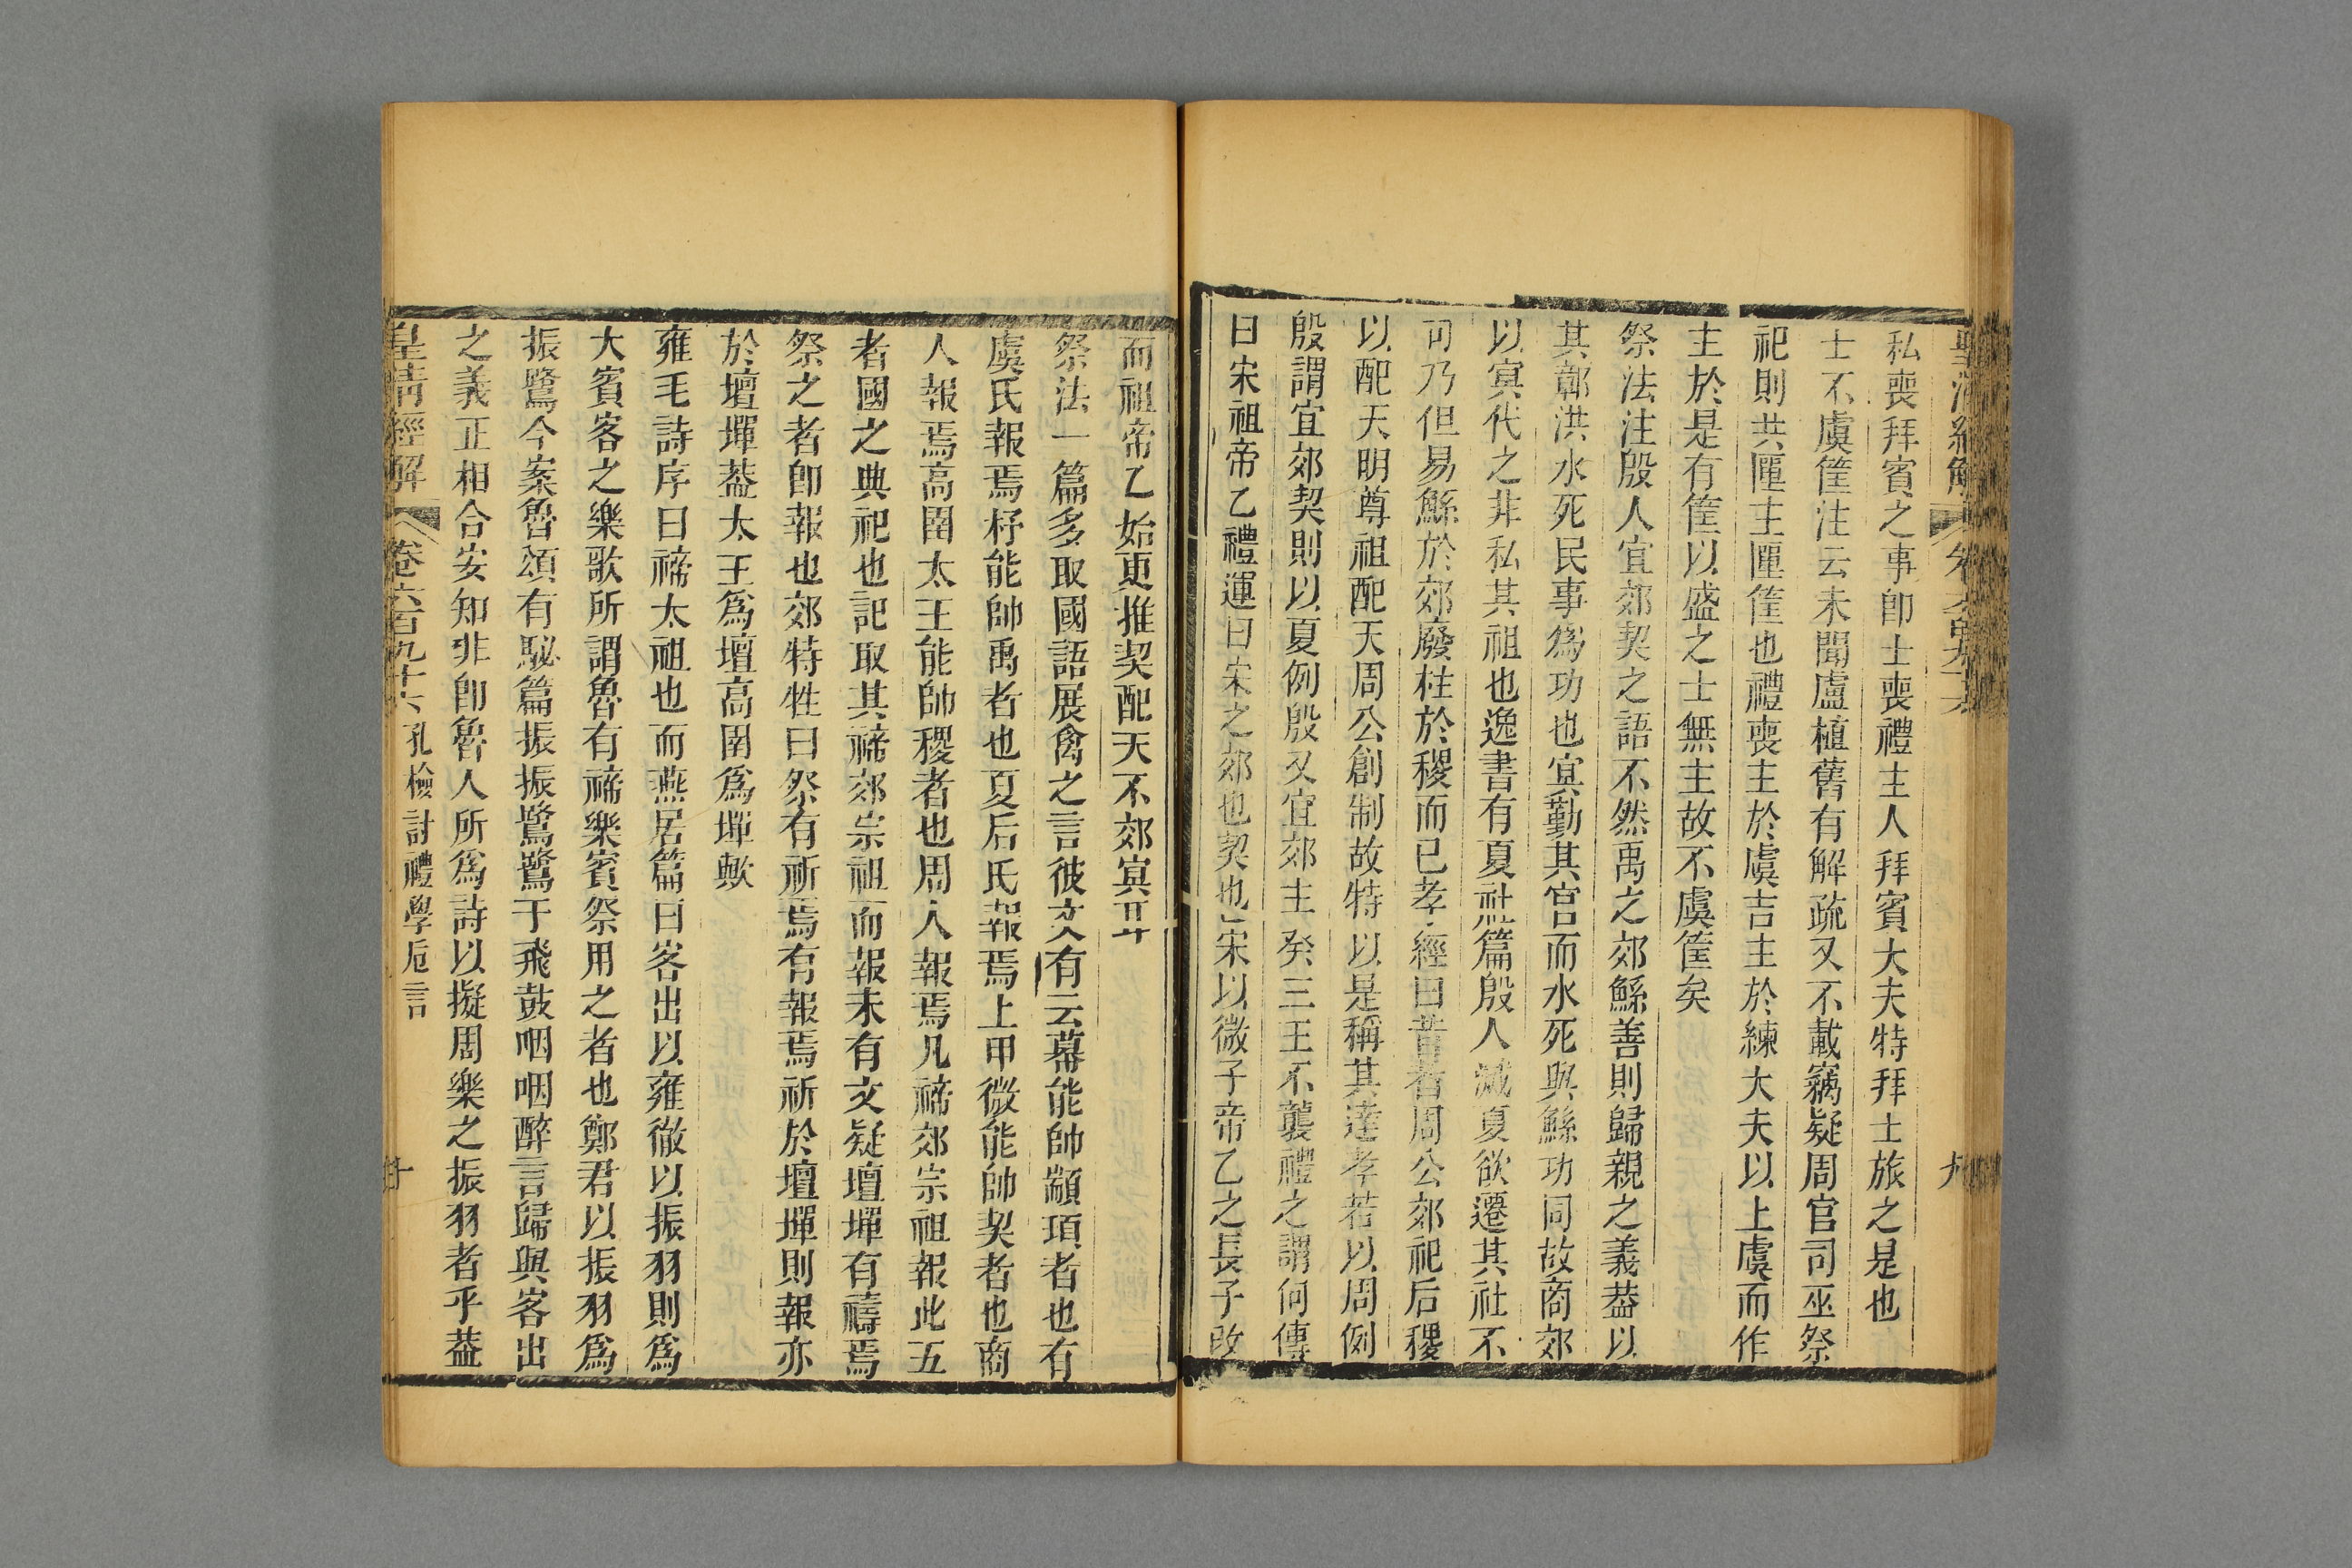 私喪拜賓之事卽士喪禮主人拜賓大夫特拜士旅之是也
士不虞筐注云未聞盧植舊有解疏又不載竊疑周官司巫祭
祀則共匰主匰筐也禮喪主於虞吉主於練大夫以上虞而作
主於是有筐以盛之士無主故不虞筐矣
祭法注殷人宜郊契之語不然禹之郊鯀善則歸親之義葢以
其鄣洪水死民事爲功也冥勤其官而水死與鯀功同故商郊
以冥代之非私其祖也逸書有夏社篇殷人滅夏欲遷其社不
可乃但易鯀於郊廢柱於稷而已孝經曰昔者周公郊祀后稷
以配天明尊祖配天周公創制故特以是稱其達孝若以周例
殷謂宜郊契則以夏例殷又宜郊主癸三王不襲禮之謂何傳
曰宋祖帝乙禮運曰宋之郊也契也宋以微子帝乙之長子改
而祖帝乙始更推契配天不郊冥耳
祭法一篇多取國語展禽之言彼文有云幕能帥顓頊者也有
虞氏報焉杼能帥禹者也夏后氏報焉上甲微能帥契者也商
人報焉高圉太王能帥稷者也周人報焉凡禘郊宗祖報此五
者國之典祀也記取其禘郊宗祖而報未有文疑壇墠有禱焉
祭之者卽報也郊特牲曰祭有祈焉有報焉祈於壇墠則報亦
於壇墠葢太王爲壇高圉爲墠歟
雍毛詩序曰禘太祖也而燕居篇曰客出以雍徹以振羽則爲
大賓客之樂歌所謂魯有禘樂賓祭用之者也鄭君以振羽爲
振鷺今案魯頌有駜篇振振鷺鷺于飛鼓咽咽醉言歸與客出
之義正相合安知非卽魯人所爲詩以擬周樂之振羽者乎葢
皇清經解 卷六百九十六 孔檢討禮學卮言